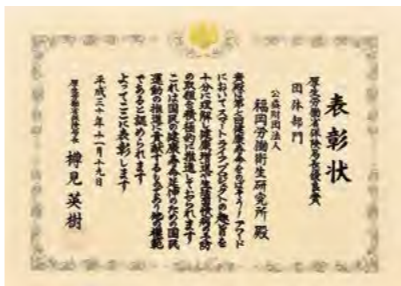 表彰状
厚生労働省保険局長優良賞
団体部門
公益財団法人
福岡労働衛生研究所 殿
貴殿は第七回健康寿命をのばそう!アワード
においてスマートライフプロジェクトの趣旨を
十分に理解し健康増進や生活習慣病の予防
の取組を積極的に推進しておられます
これは国民の健康寿命延伸のための国民
運動の推進に貢献するものであり他の模範
であると認められます
よってここに表彰します
平成三十年十一月十九日
厚生労働省保険局長 樽見英樹